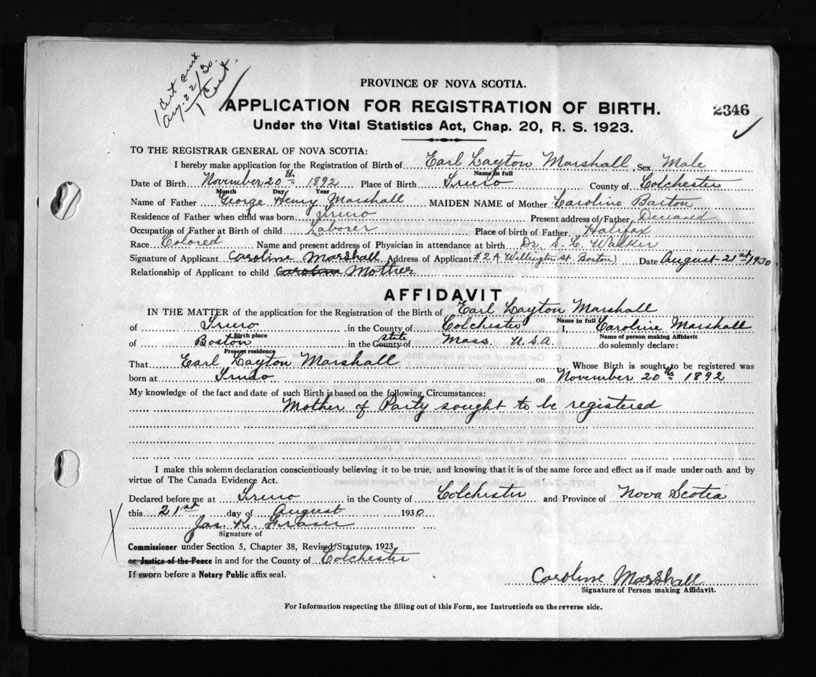 1 Cert sent
Aug. 22/30.
1 Cert.
PROVINCE OF NOVA SCOTIA.
APPLICATION FOR REGISTRATION OF BIRTH. 2346
Under the Vital Statistics Act, Chap. 20, R. S. 1923.
TO THE REGISTRAR GENERAL OF NOVA SCOTIA:
I hereby make application for the Registration of Birth of Earl Layton Marshall, Sex Male
Name in full
Date of Birth November 20th 1892 Place of Birth Truro County of Colchester
Month Day Year
Name of Father George Henry Marshall MAIDEN NAME of Mother Caroline Barton
Residence of Father when child was born Truro Present address of Father Deceased
Occupation of Father at Birth of child Laborer Place of birth of Father Halifax
Race Colored Name and present address of Physician in attendance at birth Dr. S. L. Walker
Signature of Applicant Caroline Marshall Address of Applicant #2A Wellington St Boston Date August 21st 1930
Relationship of Applicant to child Caroline Mother
AFFIDAVIT
IN THE MATTER of the application for the Registration of the Birth of Earl Layton Marshall
Name in full
of Truro in the County of Colchester I, Caroline Marshall
Birth place Name of person making Affidavit
of Boston in the County of state Mass. U.S.A. do solemnly declare:
Present residence
That Earl Layton Marshall Whose Birth is sought to be registered was
born at Truro on November 20th 1892
My knowledge of the fact and date of such Birth is based on the following Circumstances:
Mother of Party sought to be registered
I make this solemn declaration conscientiously believing it to be true, and knowing that it is of the same force and effect as if made under oath and by
virtue of The Canada Evidence Act.
Declared before me at Truro in the County of Colchester and Province of Nova Scotia
this 21st day of August 1930
X Jas. Fraser
Signature of
Commissioner under Section 5, Chapter 38, Revised Statutes, 1923
or Justice of the Peace in and for the County of Colchester
If sworn before a Notary Public affix seal.
Caroline Marshall
Signature of Person making Affidavit.
For Information respecting the filling out of this Form, see Instructions on the reverse side.